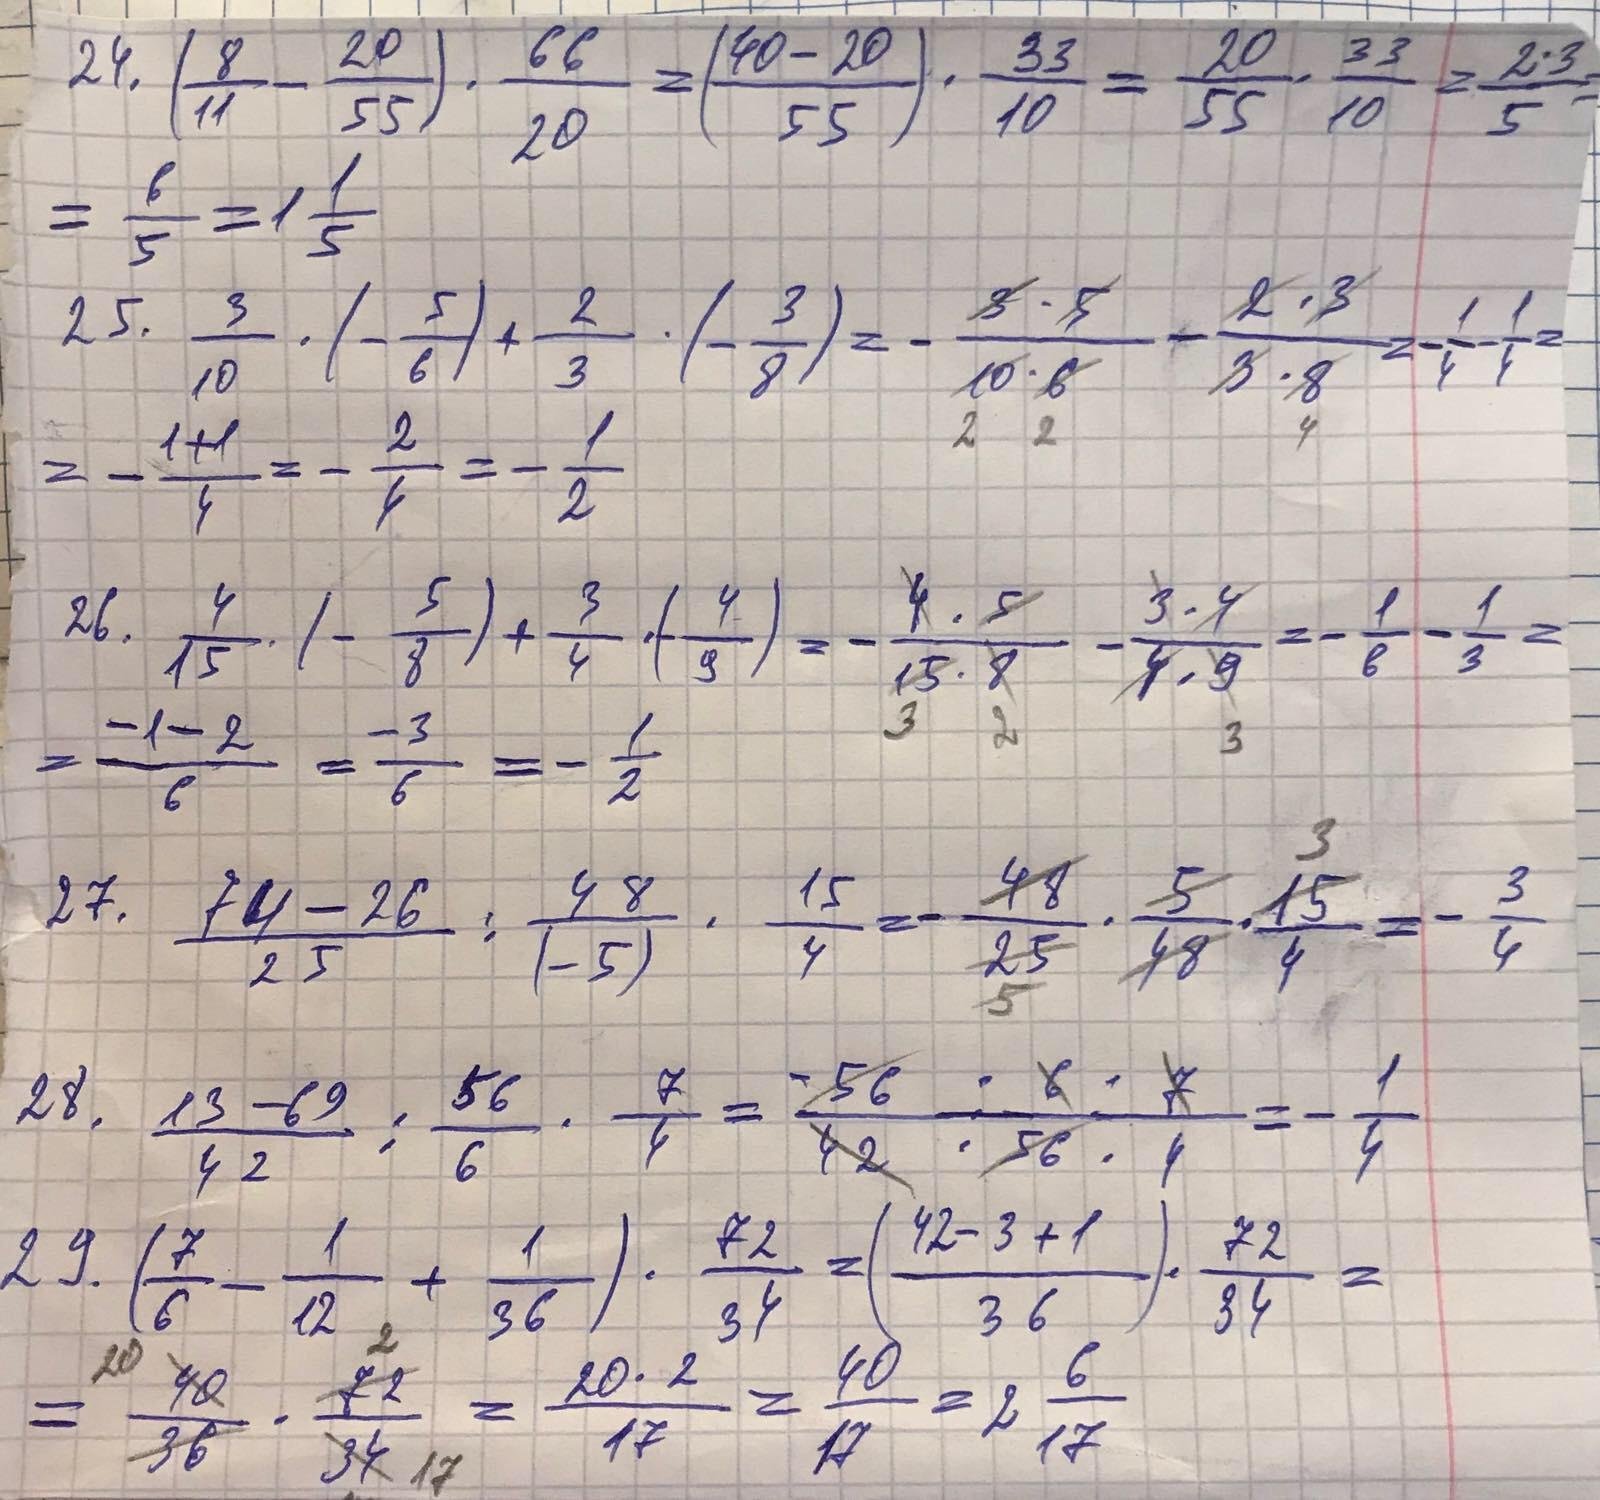 24. (8/11 - 20/55) · 66/20 = (40-20/55) · 33/10 = 20/55 · 33/10 = 2·3/5 =
= 6/5 = 1 1/5
25. 3/10 · (- 5/6) + 2/3 · (- 3/8) = - 3·5/10·6 - 2·3/3·8 = - 1/4 - 1/4 =
2 2 4
= - 1+1/4 = - 2/4 = - 1/2
26. 4/15 · (- 5/8) + 3/4 · (- 4/9) = - 4·5/15·8 - 3·4/4·9 = - 1/6 - 1/3 =
3 2 3
= -1-2/6 = -3/6 = - 1/2
3
27. 74-26/25 : 48/(-5) · 15/4 = - 48/25 · 5/48 · 15/4 = - 3/4
5
28. 13-69/42 : 56/6 · 7/4 = -56 · 6 · 7/42 · 56 · 4 = - 1/4
29. (7/6 - 1/12 + 1/36) · 72/34 = (42-3+1/36) · 72/34 =
20 2
= 40/36 · 72/34 = 20·2/17 = 40/17 = 2 6/17
17